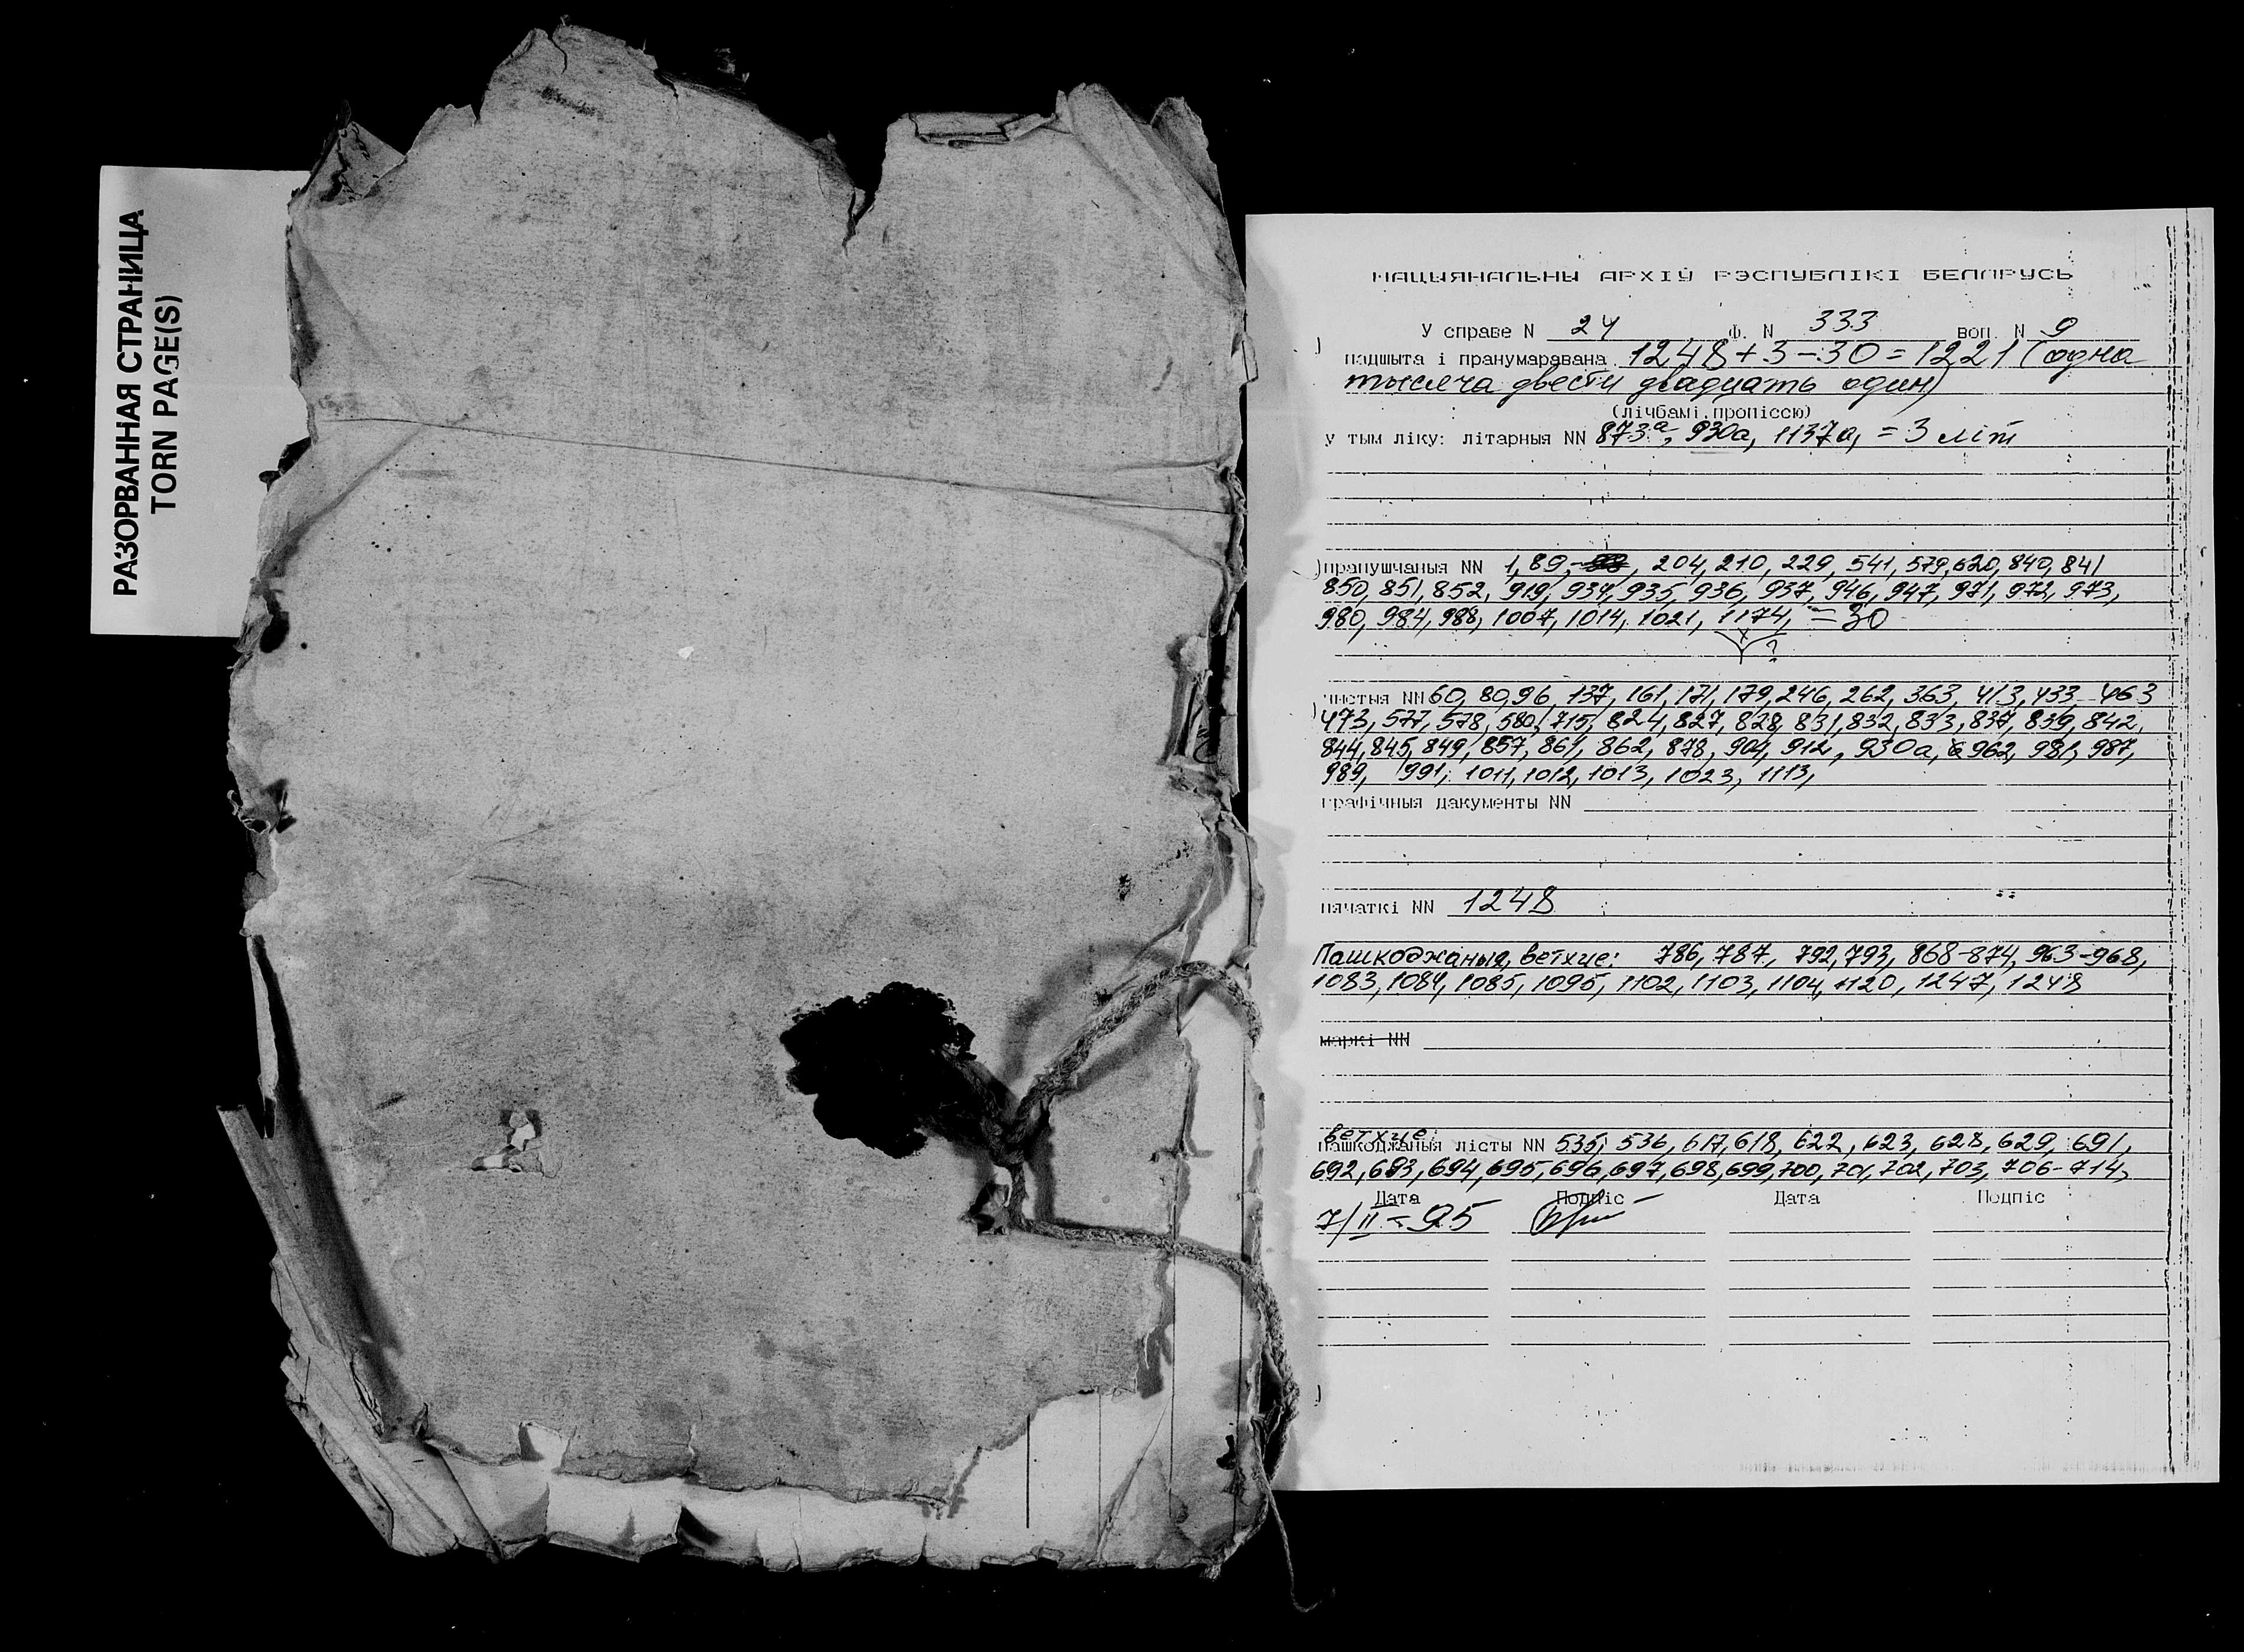 РАЗОРВАННАЯ СТРАНИЦА
TORN PAGE(S)
НАЦЫЯНАЛЬНЫ АРХІЎ РЭСПУБЛІКІ БЕЛАРУСЬ
У справе N 24 Ф. N 333 воп. N 9
падшыта і пранумаравана 1248+3-30=1221 (одна
тысяча двести двадцать один)
(лічбамі, пропіссю)
у тым ліку: літарныя NN 873а, 930а, 1137а, = 3 літ
прапушчаныя NN 1, 89, 204, 210, 229, 541, 579, 620, 840, 841
850, 851, 852, 919, 934, 935, 936, 937, 946, 947, 971, 972, 973,
980, 984, 988, 1007, 1014, 1021, 1174, = 30
?
чистыя NN 60, 80, 96, 137, 161, 171, 179, 246, 262, 363, 413, 433, 463
473, 577, 578, 580, 715, 824, 827, 828, 831, 832, 833, 837, 839, 842,
844, 845, 849, 857, 861, 862, 878, 904, 912, 930а, 962, 981, 987,
989, 991, 1011, 1012, 1013, 1023, 1113,
графічныя дакументы NN
пячаткі NN 1248
Пашкоджаныя, ветхие: 786, 787, 792, 793, 868-874, 963-968,
1083, 1084, 1085, 1095, 1102, 1103, 1104, 1120, 1247, 1248
маркі NN
ветхие:
пашкоджаныя лісты NN 535, 536, 617, 618, 622, 623, 628, 629, 691,
692, 693, 694, 695, 696, 697, 698, 699, 700, 701, 702, 703, 706-714,
Дата Подпіс Дата Подпіс
7/II-95